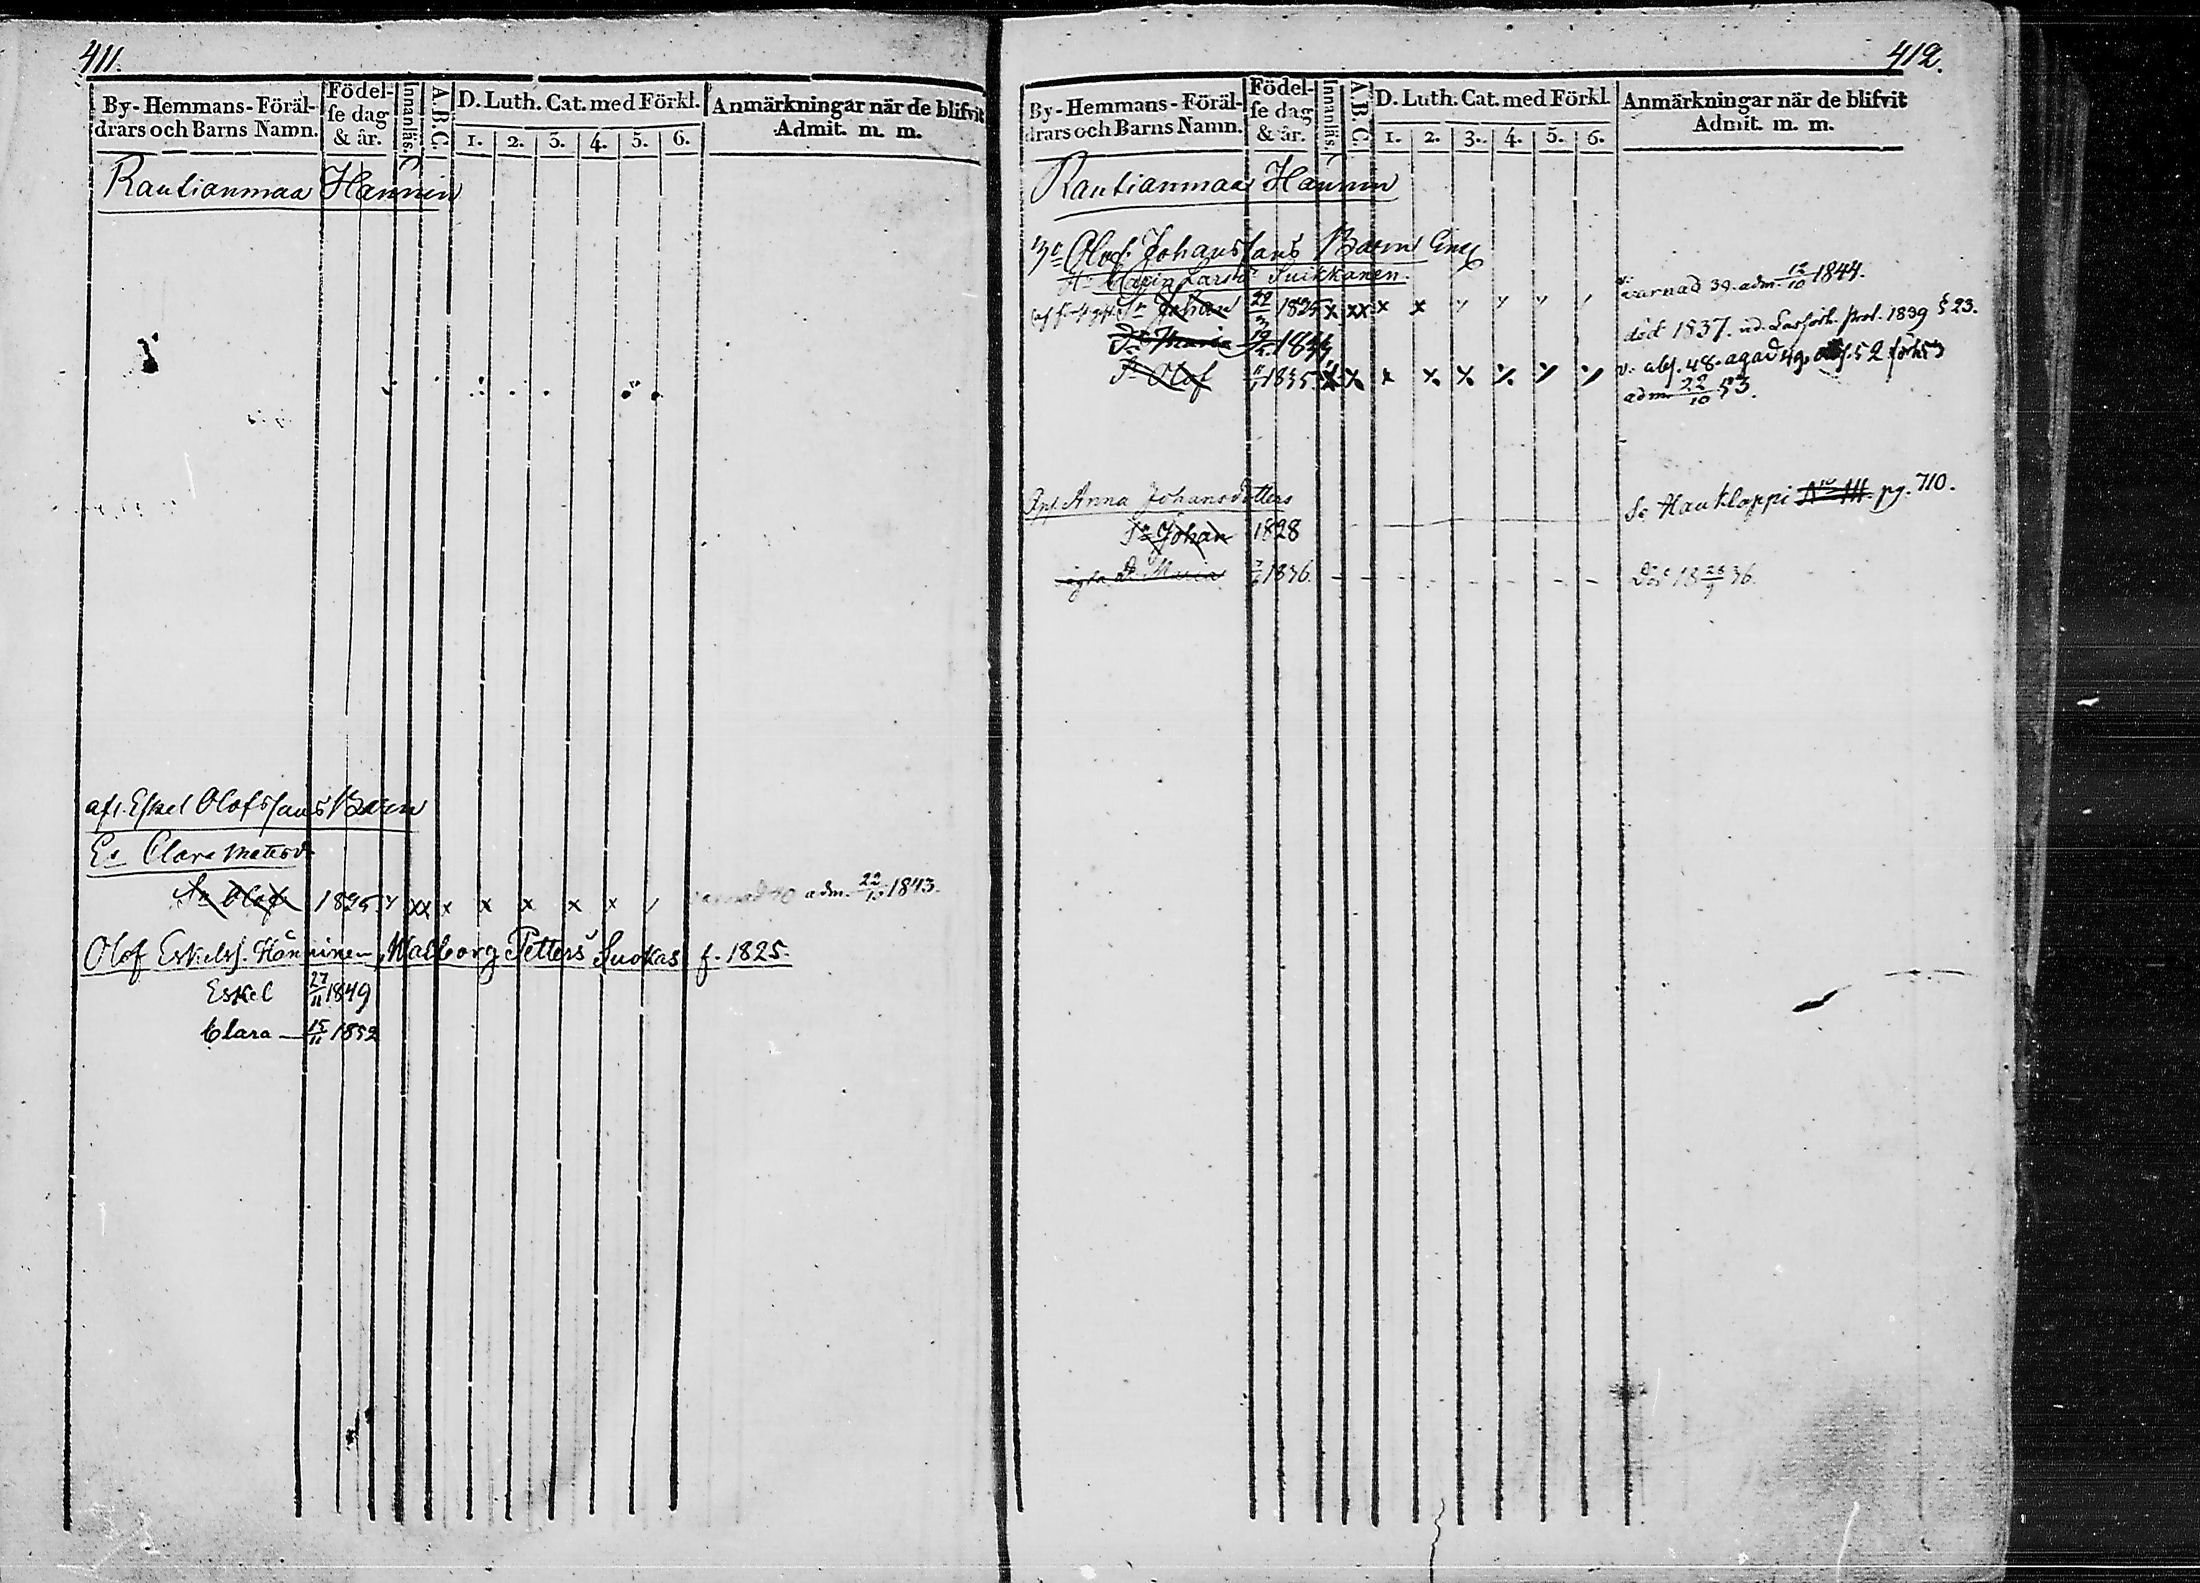 411.
By-Hemmans-Föräl-
drars och Barns Namn.
Födel-
se dag
& år.
Innanläs.
A.B.C.
D. Luth. Cat. med Förkl.
1. 2. 3. 4. 5. 6.
Anmärkningar när de blifvit
Admit. m. m.
Rautianmaa Hännin
afl. Eskel Olofssons Barn
Clara
Sn Olof 1825 x xx x x x x x adm. 22/10 1843.
Olof Eskelss. Hänninen, Walborg Petters Suokas f. 1825.
Eskel 27/11 1849
Clara 15/11 1852
412.
By-Hemmans-Föräl-
drars och Barns Namn.
Födel-
se dag
& år.
Innanläs.
A.B.C.
D. Luth. Cat. med Förkl.
1. 2. 3. 4. 5. 6.
Anmärkningar när de blifvit
Admit. m. m.
Rautianmaa Hännin
Olof Johanssons Barn
Maria Larsdr Suikkanen.
Sn Johan 22/3 1825 x xx x x varnad 39. adm. 12/10 1844.
Maria död 1837. Prot. 1839 § 23.
Sn Olof 1835 x x x x x x x x v. abs. 48. agad 49. 52
adm 22/10 53.
Anna Johansdotters
Sn Johan 1828 Se Haukloppi pg. 710.
Dr Maria 1836. Död 18 28/9 36.